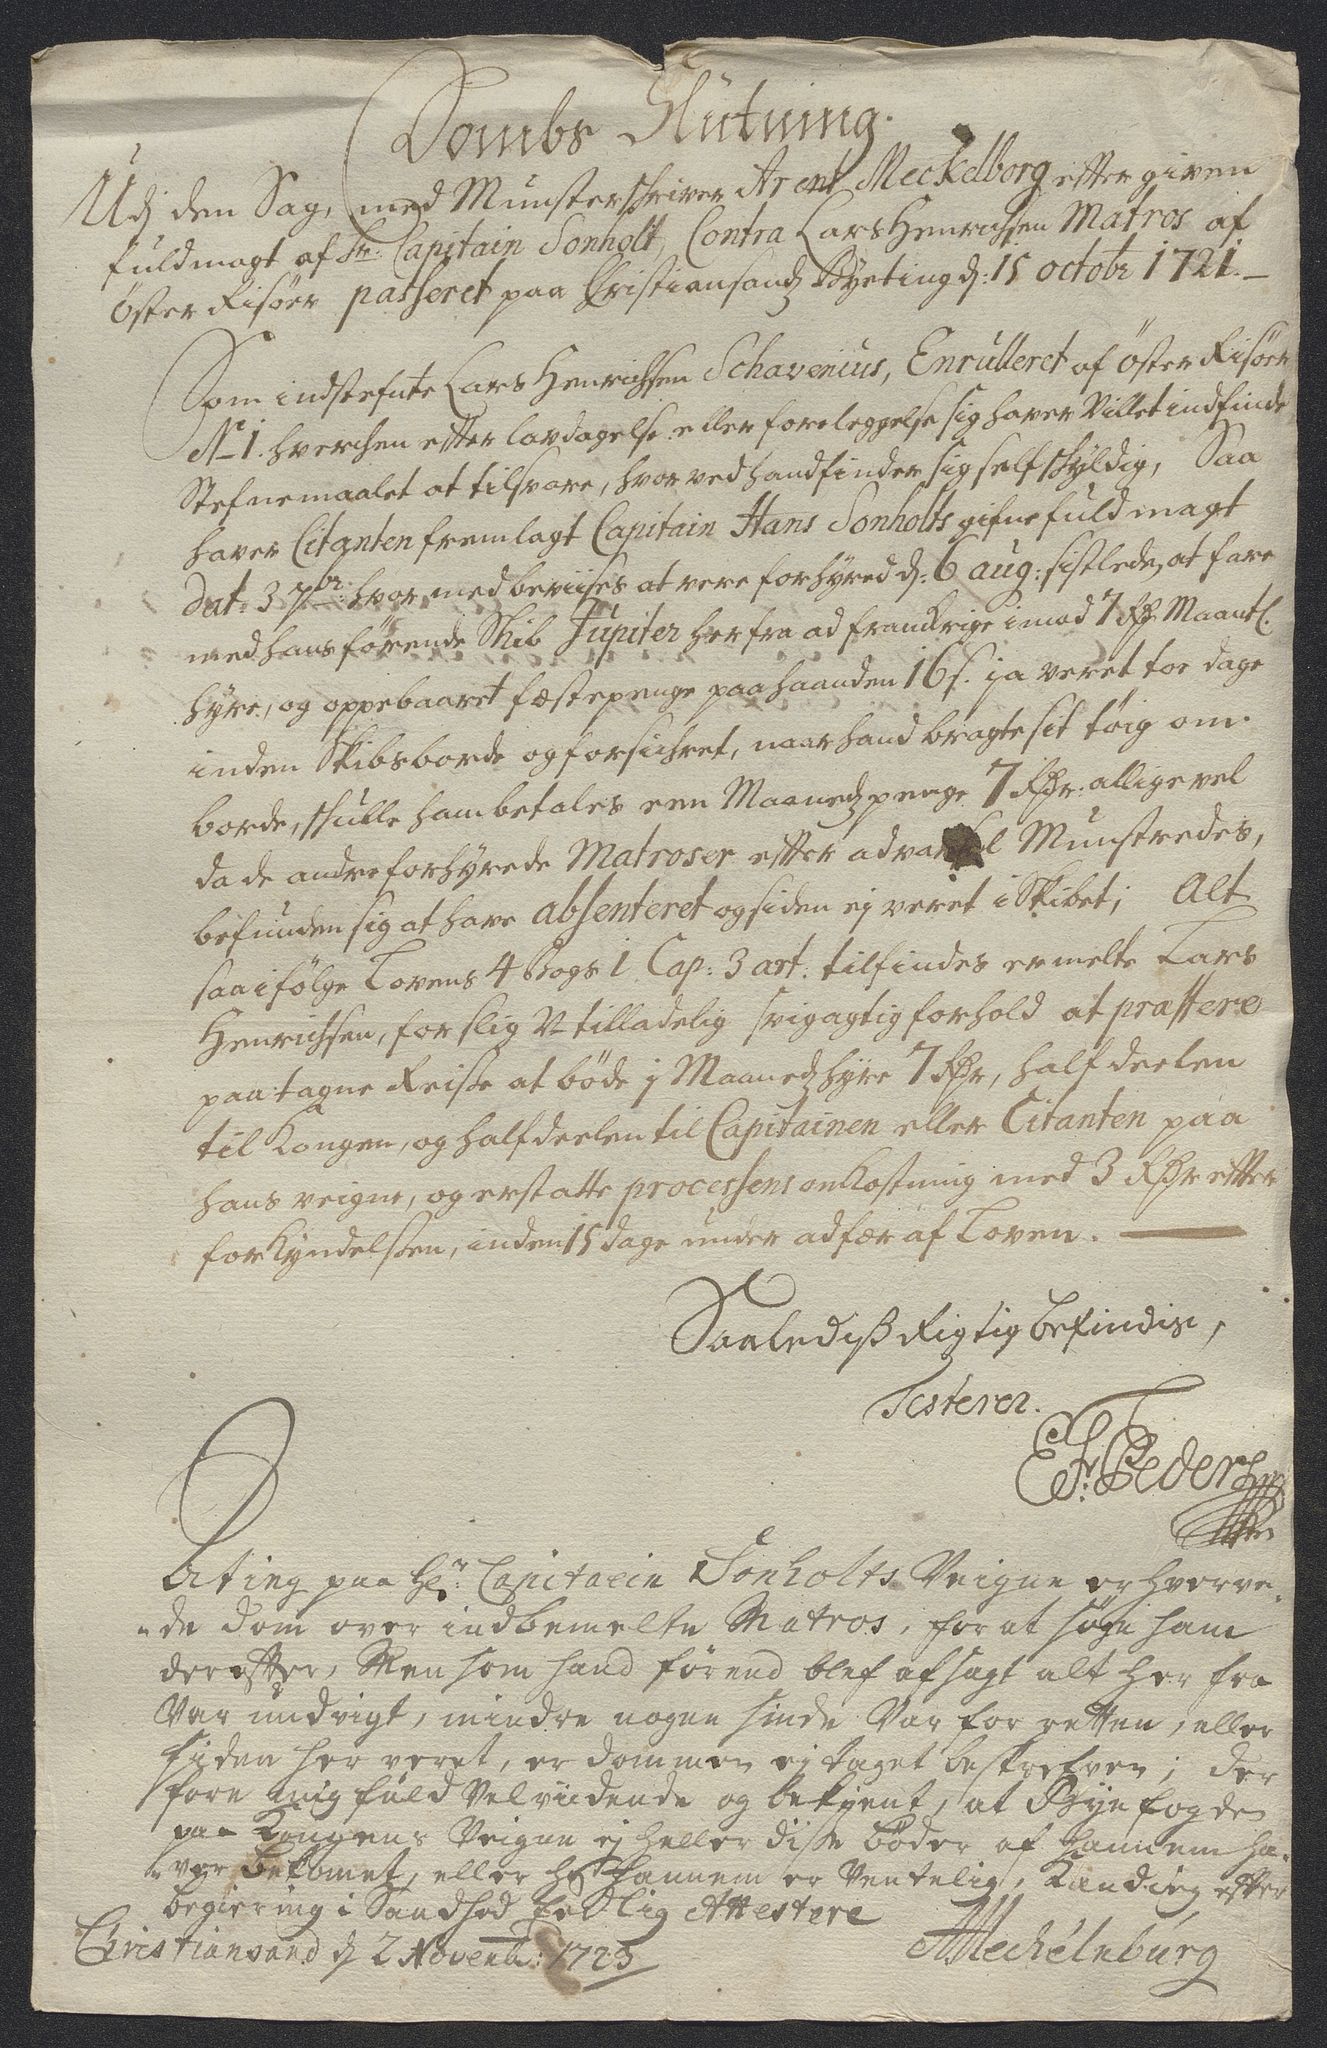 Dombs Slutning.
Udj den Sag, med Munsterschriver Arent Meckelborg efter given
fuldmagt af Hr: Capitain Sonholt, Contra Lars Henrichsen Matros af
öster Risöer passeret paa Christiansandz Byeting d: 15 octobr 1721. –
Som indstefnte Lars Henrichsen Schavenius, Enrulleret af öster Risöer
No 1. hverchen efter lavdagelse eller foreleggelse sig haver Villet indfinde
Stefnemaalet at tilsvare, hvorved hand finder sig self schyldig, Saa
haver Citanten fremlagt Capitain Hans Sonholts gifne fuldmagt
dat: 3 7br: hvormed beviises at vere forhyred d: 6 aug: sistleden, at fare
med hans förende Skib Jupiter herfra ad franckrige imod 7 Rdr Maantl.
hyre, og oppebaaret fæstepenge paa haanden 16 s. ja veret toe dage
inden Skibsborde og forsichret, naar hand bragte sit töig om-
borde, skulle ham betales een Maanedz penge 7 Rdr: alligevel
da de andre forhyrede Matroser efter advarsel Munstredes,
befunden sig at have absenteret og siden ej veret i Skibet; Alt
saa ifölge Lovens 4 Bogs 1 Cap: 3 art: tilfindes ermelte Lars
Henrichsen, for slig U-tilladelig svigagtig forhold at præstere
paatagne Reise at böde j Maanedz hyre 7 Rdr, halfdeelen
til Kongen, og halfdeelen til Capitainen eller Citanten paa
hans veigne, og erstatte processens omkostning med 3 Rdr efter
forkyndelsen, inden 15 dage under adfær af Loven. –
Saalediss Rigtig befindis,
Testerer.
E. Fr: Pedersen
At ieg paa Hr: Capitaein Sonholts Veigne erhverve-
-de dom over indbemelte Matros, for at söge ham
derefter, Men som hand förend blef afsagt alt her fra
Var undvigt, mindre nogen sinde Var for retten, eller
siden her veret, er dommen ej taget beskrefven; der
fore mig fuld Velviidende og bekient, at Byefogden
paa Kongens Veigne ej heller disse böder af hannem ha-
-ver bekomet, eller hos hannem er Ventelig, Kand ieg efter
begiering i Sandhed Attestere
Christiansand d 2 Novemb: 1723 AMechelnburg